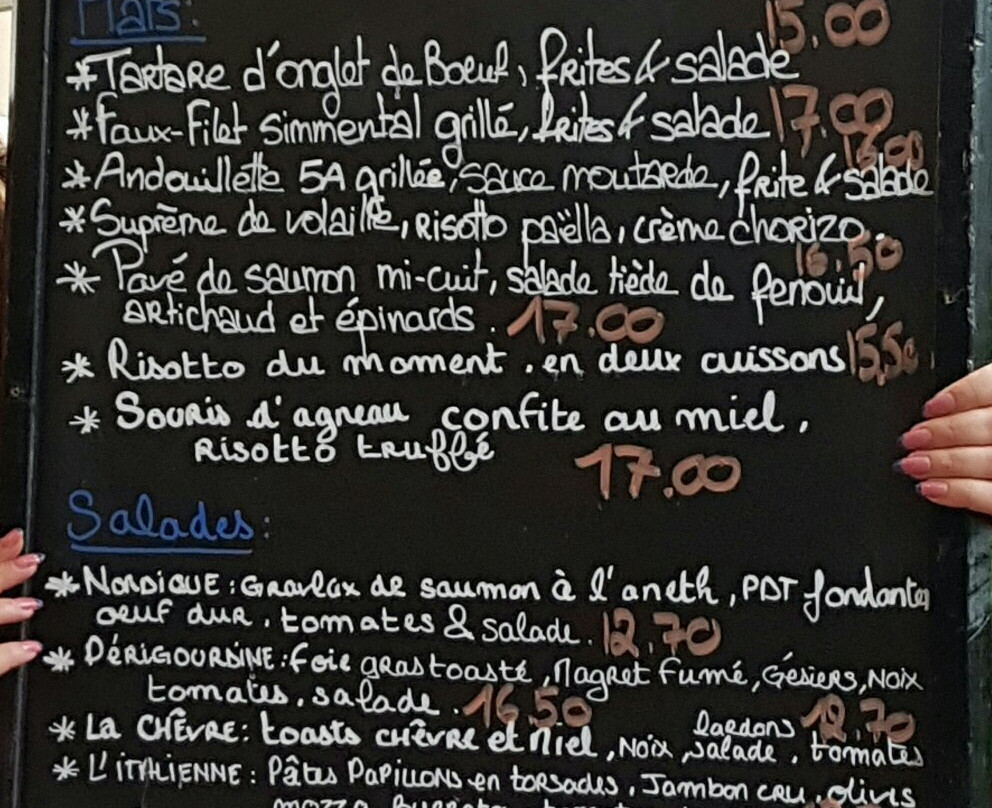 Plats:
*Tartare d'onglet de Boeuf, frites & salade 15.00
*Faux-Filet Simmental grillé, frites & salade 17.00
*Andouillette 5A grillée, sauce moutarde, frite & salade
*Suprême de volaille, Risotto paëlla, crème chorizo. 16.50
* Pavé de saumon mi-cuit, salade tiède de fenouil,
artichaud et épinards. 17.00
* Risotto du moment. en deux cuissons 15,50
* Souris d'agneau confite au miel.
Risotto truffé 17.00
Salades:
*Nordique: Gravlax de saumon à l'aneth, PDT fondantes
oeuf dur. tomates & salade. 12.70
* Périgourdine: foie gras toasté, Magret fumé, Gésiers, Noix
tomates. salade. 16.50
* La Chèvre: toasts chèvre et miel, Noix, salade. tomates lardons 12.70
* L'italienne: Pâtes Papillons en torsades, Jambon cru, olives